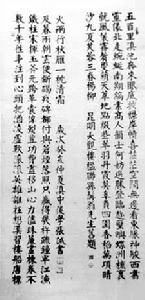 五百里滇池奔來眼底披襟岸幘喜茫茫空闊無邊看東驤神駿西翥
靈儀北走蜿蜒南翔縞素高人韻士何妨選勝登臨趁蟹嶼螺洲梳裹就
風鬟霧鬢更蘋天葦地點綴些翠羽丹霞莫孤負四圍香稻萬頃晴
沙九夏芙蓉三春楊柳 昆明大觀樓楹聯孫髯翁先生舊題
數千年往事注到心頭把酒凌虛歎滾滾英雄誰在想漢習樓船唐標
鐵柱宋揮玉斧元跨革囊偉烈豐功費盡移山心力儘珠簾畫棟卷不
及暮雨朝雲便斷碣殘碑都付與蒼煙落照只贏得幾杵疏鐘半江漁
火兩行秋雁一枕清霜 歲次癸亥仲夏滇中後學張誠書